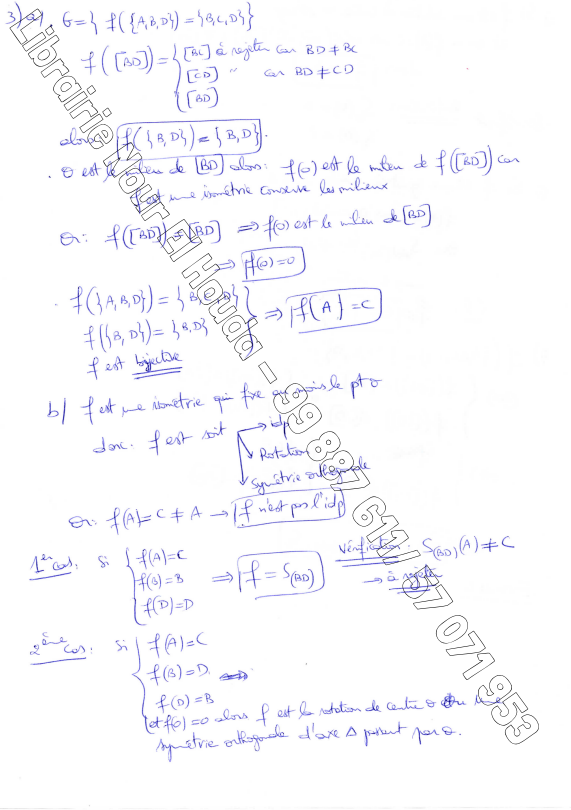 3) a) G = { f({A,B,D}) = {B,C,D}}
f([BD]) = { [BC] à rejeter car BD ≠ BC
[CD] " car BD ≠ CD
[BD]
alors f({B,D}) = {B,D}.
. O est le milieu de [BD] alors: f(O) est le milieu de f([BD]) car
f est une isométrie conserve les milieux
Or: f([BD]) = [BD] ⇒ f(O) est le milieu de [BD]
⇒ f(O) = O
. f({A,B,D}) = {B,C,D}
f({B,D}) = {B,D} } ⇒ f(A) = C
f est bijective
b/ f est une isométrie qui fixe au moins le pt O
donc: f est soit → idp
Rotation
Symétrie orthogonale
Or: f(A) = C ≠ A → f n'est pas l'idp
1er cas: Si { f(A) = C
f(B) = B ⇒ f = S(BD) Vérification: S(BD)(A) ≠ C
f(D) = D → à rejeter
2ème cas: Si { f(A) = C
f(B) = D
f(D) = B
et f(O) = O alors f est la rotation de centre O ou une
symétrie orthogonale d'axe Δ passant par O.
Librairie Nour El Houda – 99 897 611/ 97 071 953